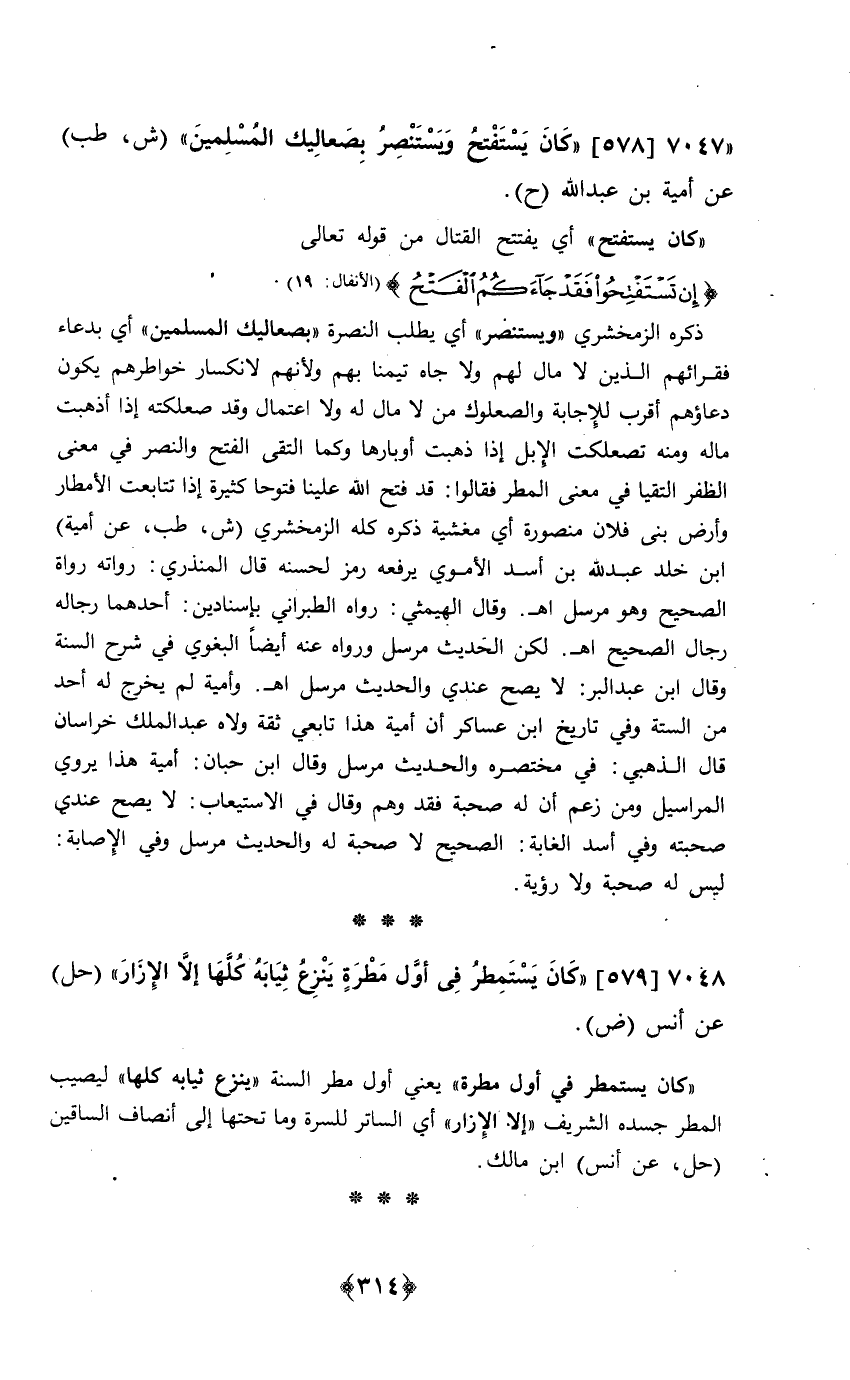 «٧٠٤٧ [٥٧٨] «كَانَ يَسْتَفْتِحُ وَيَسْتَنْصِرُ بِصَعالِيك المُسْلِمينَ» (ش، طب)
عن أمية بن عبدالله (ح).
«كان يستفتح» أي يفتتح القتال من قوله تعالى
﴿إِن تَسْتَفْتِحُواْ فَقَدْ جَآءَكُمُ الْفَتْحُ﴾ (الأنفال: ١٩).
ذكره الزمخشري «ويستنصر» أي يطلب النصرة «بصعاليك المسلمين» أي بدعاء
فقرائهم الذين لا مال لهم ولا جاه تيمنا بهم ولأنهم لانكسار خواطرهم يكون
دعاؤهم أقرب للإجابة والصعلوك من لا مال له ولا اعتمال وقد صعلكته إذا أذهبت
ماله ومنه تصعلكت الإبل إذا ذهبت أوبارها وكما التقى الفتح والنصر في معنى
الظفر التقيا في معنى المطر فقالوا: قد فتح الله علينا فتوحا كثيرة إذا تتابعت الأمطار
وأرض بنى فلان منصورة أي مغشية ذكره كله الزمخشري (ش، طب، عن أمية)
ابن خلد عبدلله بن أسد الأموي يرفعه رمز لحسنه قال المنذري: رواته رواة
الصحيح وهو مرسل اهـ. وقال الهيمثي: رواه الطبراني بإسنادين: أحدهما رجاله
رجال الصحيح اهـ. لكن الحديث مرسل ورواه عنه أيضاً البغوي في شرح السنة
وقال ابن عبدالبر: لا يصح عندي والحديث مرسل اهـ. وأمية لم يخرج له أحد
من الستة وفي تاريخ ابن عساكر أن أمية هذا تابعي ثقة ولاه عبدالملك خراسان
قال الذهبي: في مختصره والحديث مرسل وقال ابن حبان: أمية هذا يروي
المراسيل ومن زعم أن له صحبة فقد وهم وقال في الاستيعاب: لا يصح عندي
صحبته وفي أسد الغابة: الصحيح لا صحبة له والحديث مرسل وفي الإصابة:
ليس له صحبة ولا رؤية.
* * *
٧٠٤٨ [٥٧٩] «كَانَ يَسْتَمِطرُ فِى أوَّل مَطْرَةٍ يَنْزِعُ ثِيَابَهُ كُلَّهَا إلاَّ الإِزَارَ» (حل)
عن أنس (ض).
«كان يستمطر في أول مطرة» يعني أول مطر السنة «ينزع ثيابه كلها» ليصيب
المطر جسده الشريف «إلا الإزار» أي الساتر للسرة وما تحتها إلى أنصاف الساقين
(حل، عن أنس) ابن مالك.
* * *
﴿٣١٤﴾